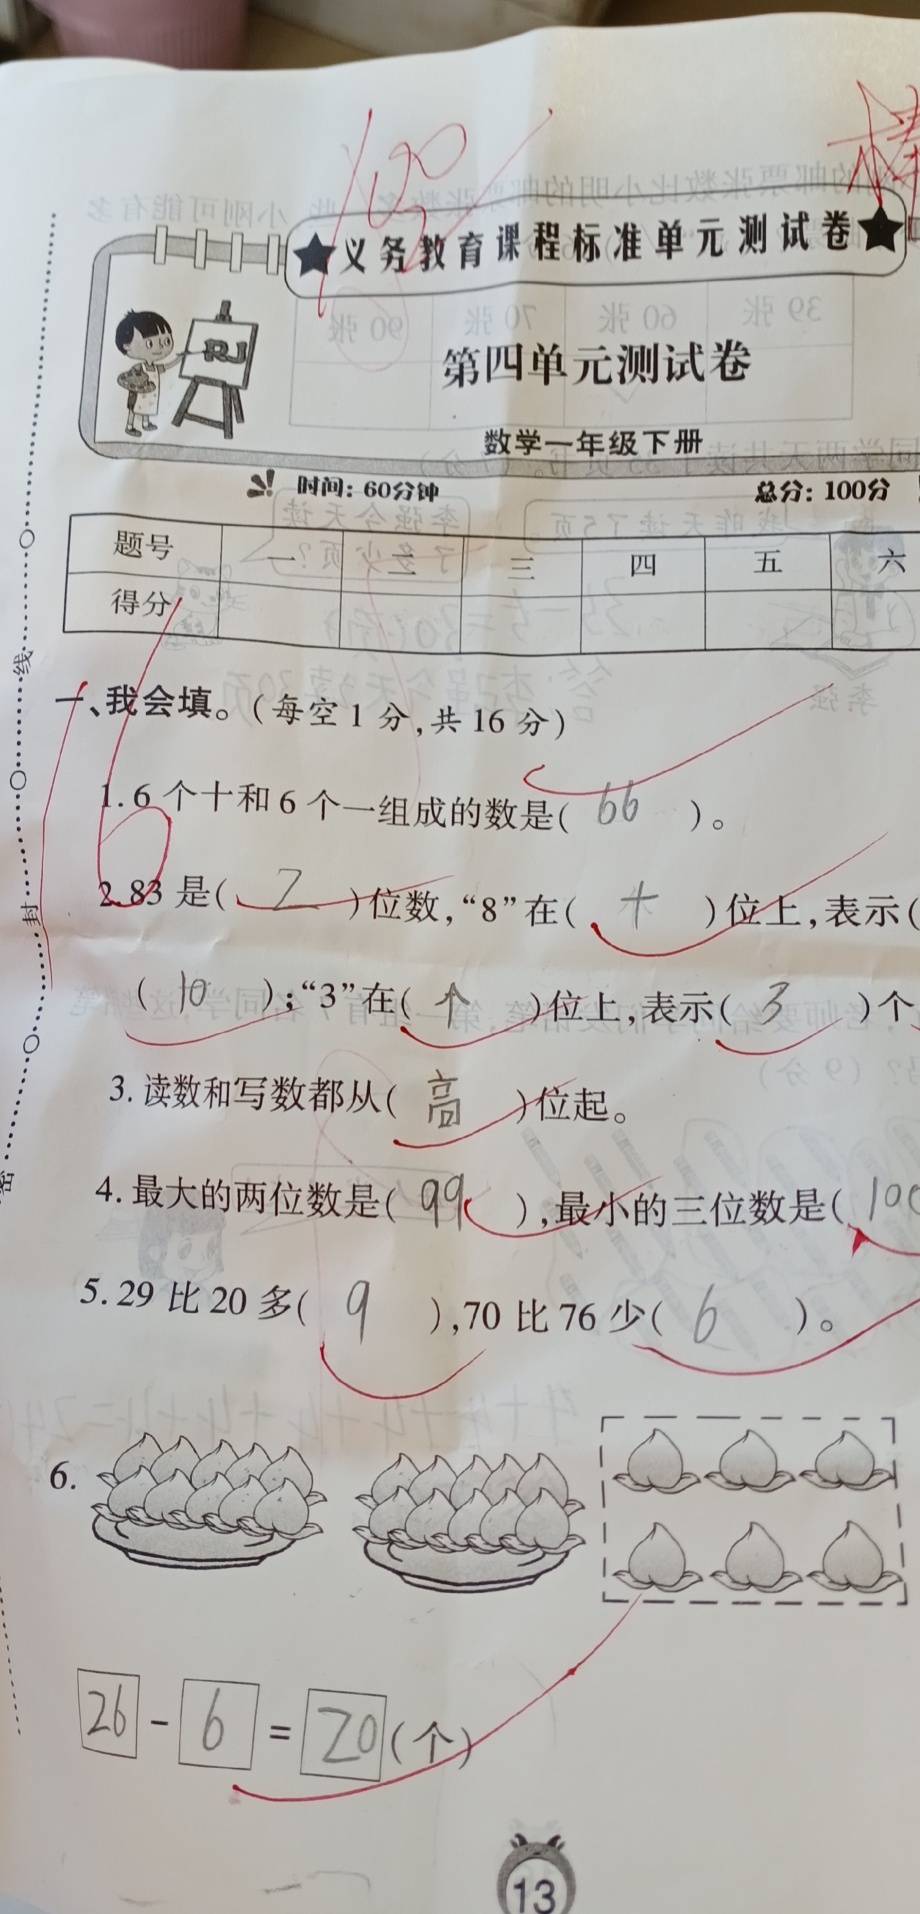 100
棒
★义务教育课程标准单元测试卷★
RJ
第四单元测试卷
数学一年级下册
时间:60分钟 总分:100分
题号 一 二 三 四 五 六
得分
一、我会填。(每空1分,共16分)
1.6个十和6个一组成的数是( 66 )。
2.83是( 2 )位数,“8”在( 十 )位上,表示(
( 10 );“3”在( 个 )位上,表示( 3 )个
3.读数和写数都从( 高 )位起。
4.最大的两位数是( 99 ),最小的三位数是( 100
5.29比20多( 9 ),70比76少( 6 )。
6.
26 - 6 = 20 (个)
13
线
封
密